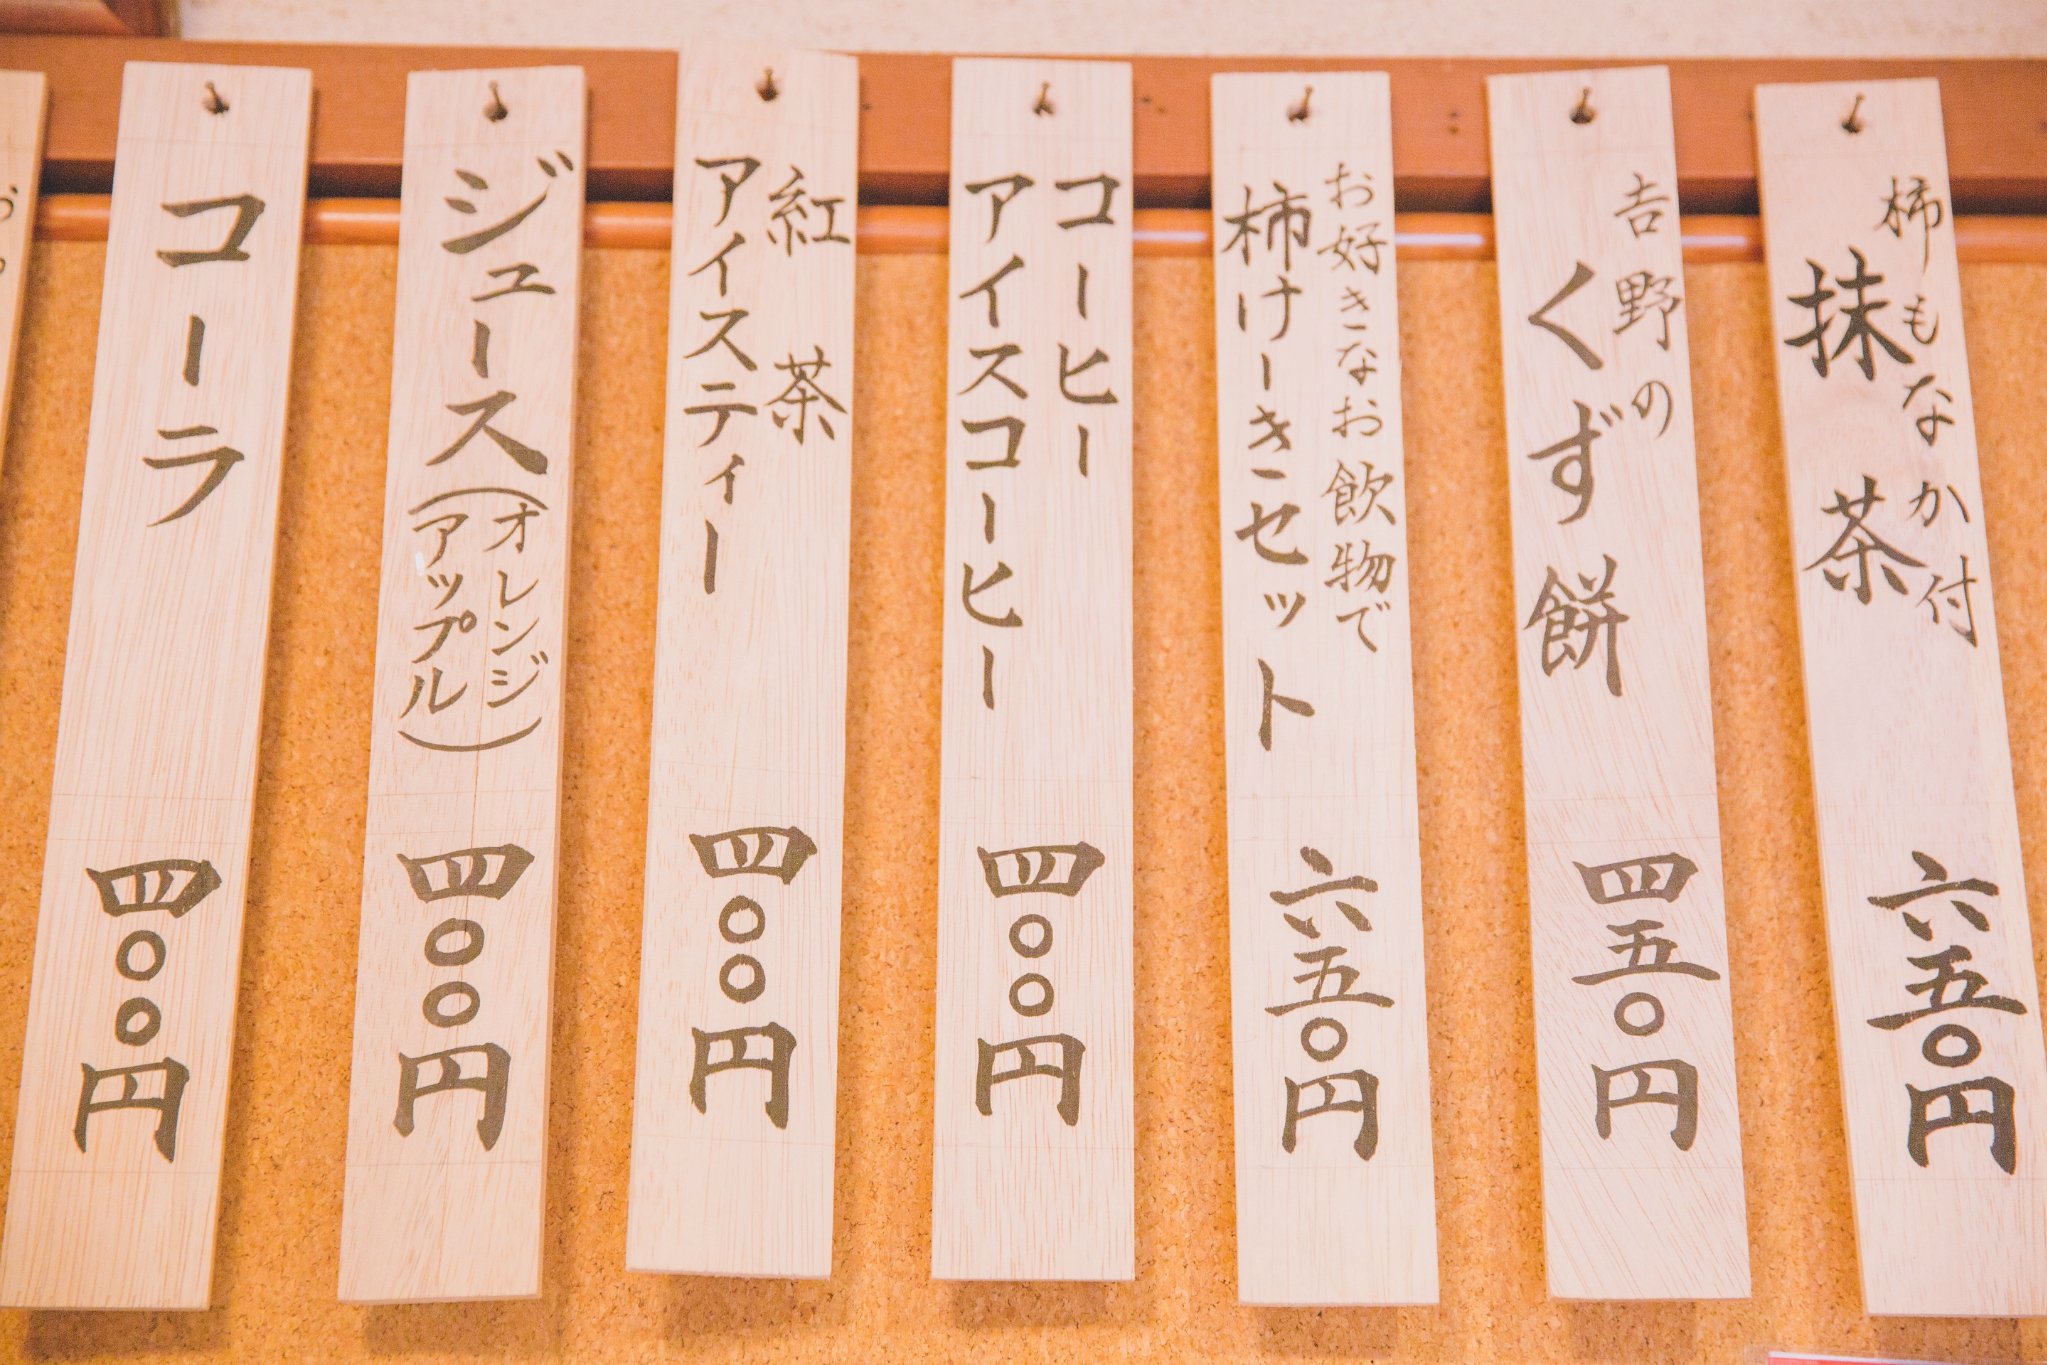 柿もなか付
抹茶
六五〇円
吉野の
くず餅
四五〇円
お好きなお飲物で
柿けーきセット
六五〇円
コーヒー
アイスコーヒー
四〇〇円
紅茶
アイスティー
四〇〇円
ジュース
(オレンジ
アップル)
四〇〇円
コーラ
四〇〇円